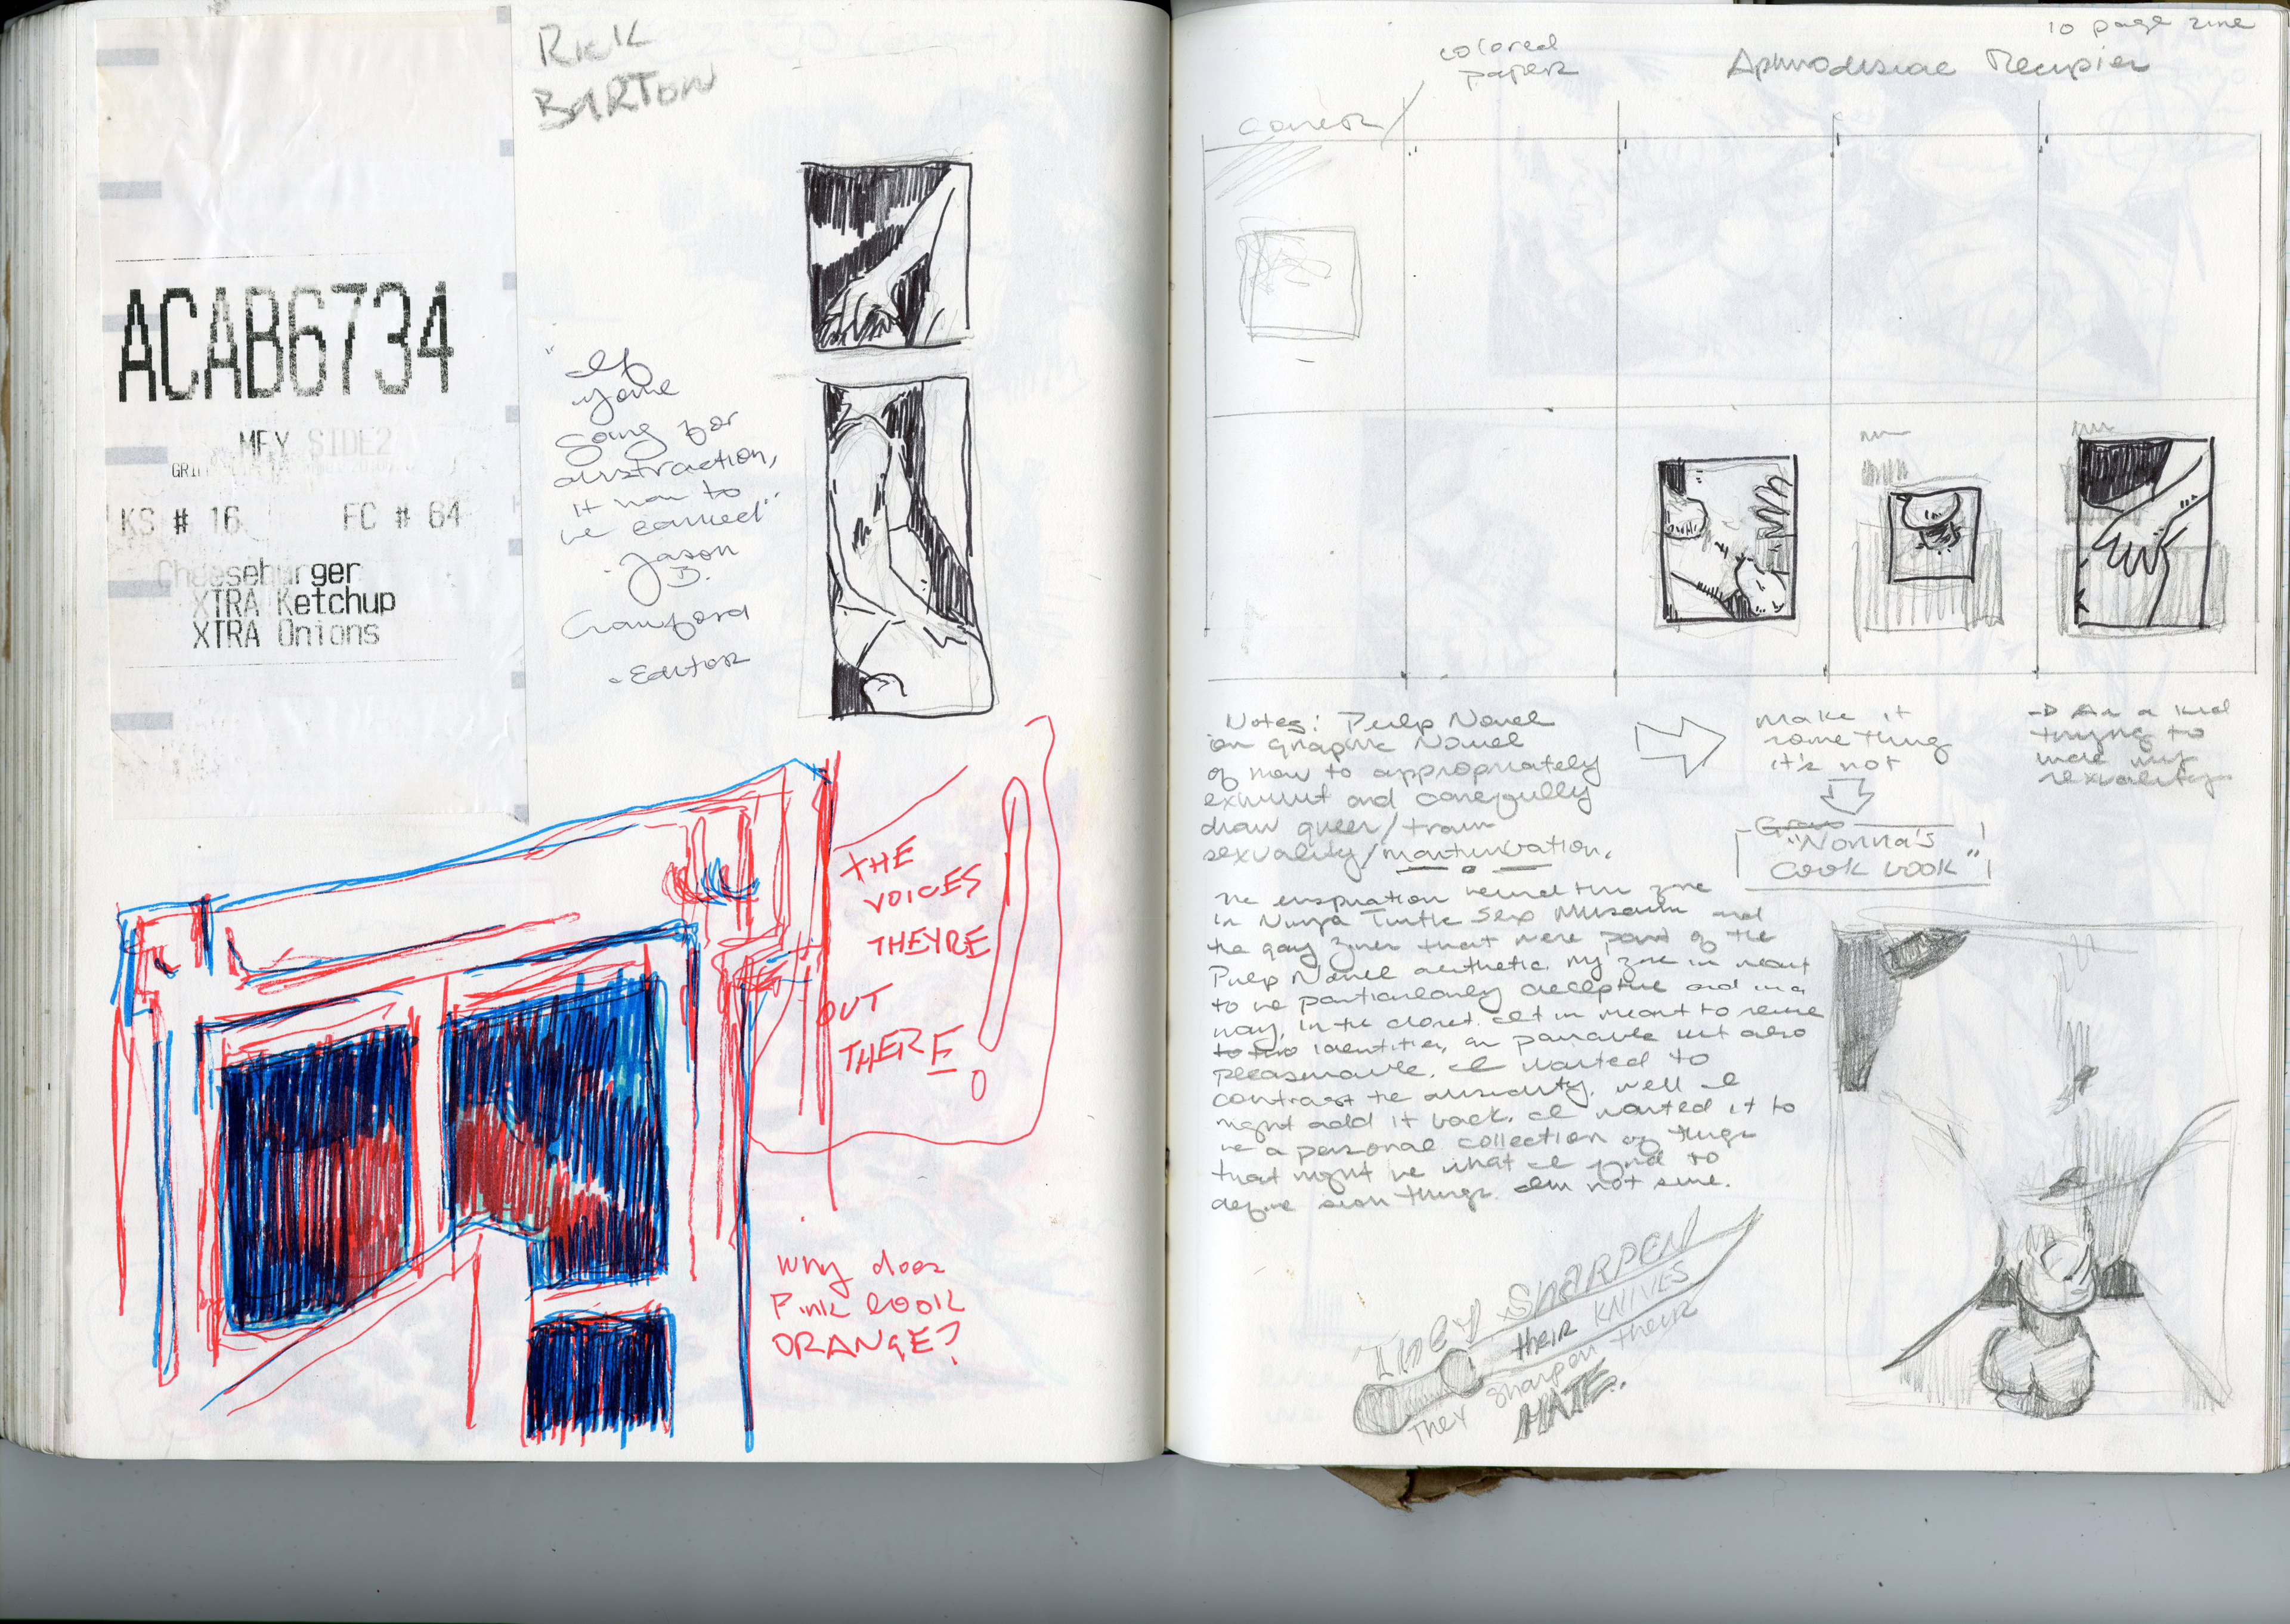 RICK
BARTON
ACAB6734
MFY SIDE2
KS # 16
FC # 64
Cheeseburger
XTRA Ketchup
XTRA Onions
"If
you're
going for
abstraction,
it has to
be earned"
- Jason
D.
Crawford
- Editor
THE
VOICES
THEYRE
OUT
THERE!
Why does
Pink look
ORANGE?
10 page zine
colored
paper
Aphrodisiac Recipies
cover
Notes: Pulp Novel
or Graphic Novel
of how to appropriately
exhibit and carefully
draw queer/trans
sexuality/masturbation.
make it
something
it's not
"Nonna's
Cook book"
→ As a kid
trying to
hide my
sexuality
The inspiration behind this zine
is Ninja Turtle Sex Museum and
the gay zines that were part of the
Pulp Novel aesthetic. My zine is meant
to be particularly deceptive and in a
way, in the closet. It is meant to
identities, as but also
pleasurable. I wanted to
contrast the absurdity, well I
might add it back. I wanted it to
be a personal collection of things
that might be what I find to
define things. Im not sure.
They SHARPEN
THEIR KNIVES
They sharpen their
HATE.